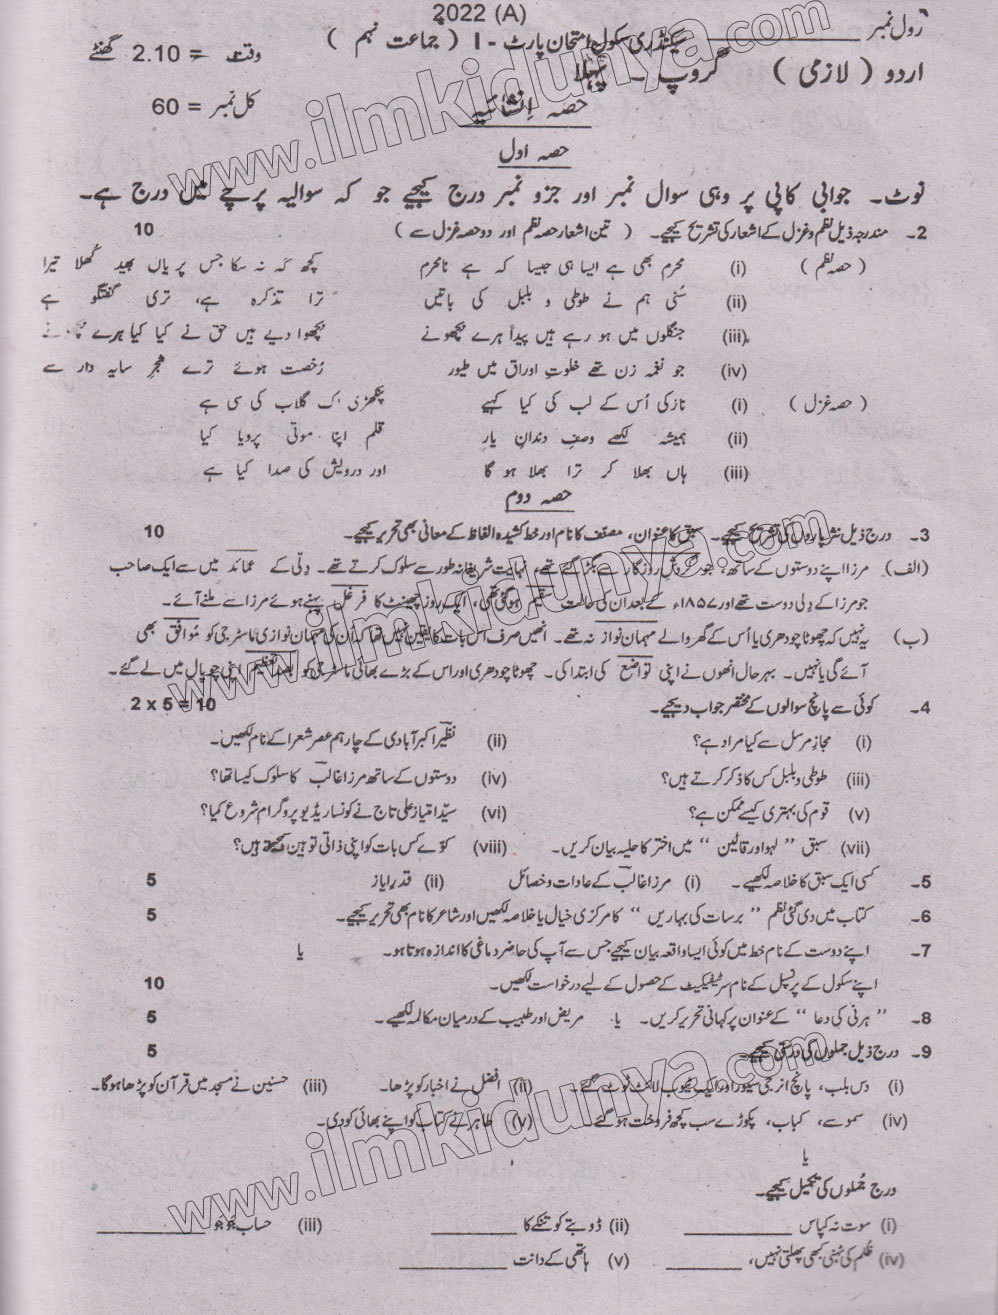 2022 (A)
رول نمبر ________ سیکنڈری سکول امتحان پارٹ - I ( جماعت نہم ) وقت = 2.10 گھنٹے
اردو ( لازمی ) گروپ - پہلا کل نمبر = 60
حصہ انشائیہ
حصہ اول
نوٹ۔ جوابی کاپی پر وہی سوال نمبر اور جزو نمبر درج کیجیے جو کہ سوالیہ پرچے میں درج ہے۔
2۔ مندرجہ ذیل نظم و غزل کے اشعار کی تشریح کیجیے۔ ( تین اشعار حصہ نظم اور دو حصہ غزل سے ) 10
( حصہ نظم ) (i) محرم بھی ہے ایسا ہی جیسا کہ ہے نامحرم کچھ کہ نہ سکا جس پر یاں بھید کُھلا تیرا
(ii) سُنی ہم نے طوطی و بلبل کی باتیں ترا تذکرہ ہے، تری گفتگو ہے
(iii) جنگلوں میں ہو رہے ہیں پیدا ہرے بچھونے بچھوا دیے ہیں حق نے کیا کیا ہرے بچھونے
(iv) جو نغمہ زن تھے خلوتِ اوراق میں طیور رُخصت ہوئے ترے شجرِ سایہ دار سے
( حصہ غزل ) (i) نازکی اُس کے لب کی کیا کہیے پنکھڑی اک گلاب کی سی ہے
(ii) ہمیشہ لکھے وصفِ دندانِ یار قلم اپنا موتی پرویا کیا
(iii) ہاں بھلا کر ترا بھلا ہو گا اور درویش کی صدا کیا ہے
حصہ دوم
3۔ درج ذیل نثر پاروں کی تشریح کیجیے۔ سبق کا عنوان، مصنف کا نام اور خط کشیدہ الفاظ کے معانی بھی تحریر کیجیے۔ 10
(الف) مرزا اپنے دوستوں کے ساتھ، جو گردشِ روزگار سے بگڑ گئے تھے، نہایت شریفانہ طور سے سلوک کرتے تھے۔ دِلّی کے عمائد میں سے ایک صاحب
جو مرزا کے دِلی دوست تھے اور ۱۸۵۷ء کے بعد ان کی حالت سقیم ہو گئی تھی، ایک روز چھینٹ کا فرغل پہنے ہوئے مرزا سے ملنے آئے۔
(ب) یہ نہیں کہ چھوٹا چودھری یا اُس کے گھر والے مہمان نواز نہ تھے۔ انھیں صرف اس بات کا یقین نہیں تھا کہ اُن کی مہمان نوازی ماسٹر جی کو موافق بھی
آئے گی یا نہیں۔ بہرحال انھوں نے اپنی تواضع کی ابتدا کی۔ چھوٹا چودھری اور اس کے بڑے بھائی ماسٹر جی کو بصد تعظیم اپنی چوپال میں لے گئے۔
4۔ کوئی سے پانچ سوالوں کے مختصر جواب دیجیے۔ 2 x 5 = 10
(i) مجاز مرسل سے کیا مراد ہے؟ (ii) نظیر اکبر آبادی کے چار ہم عصر شعرا کے نام لکھیں۔
(iii) طوطی و بلبل کس کا ذکر کرتے ہیں؟ (iv) دوستوں کے ساتھ مرزا غالب کا سلوک کیسا تھا؟
(v) قوم کی بہتری کیسے ممکن ہے؟ (vi) سیّد امتیاز علی تاج نے کونسا ریڈیو پروگرام شروع کیا؟
(vii) سبق " لہو اور قالین " میں اختر کا حلیہ بیان کریں۔ (viii) کوّے کس بات کو اپنی ذاتی توہین سمجھتے ہیں؟
5۔ کسی ایک سبق کا خلاصہ لکھیے۔ (i) مرزا غالب کے عادات و خصائل (ii) قدر ایاز 5
6۔ کتاب میں دی گئی نظم " برسات کی بہاریں " کا مرکزی خیال یا خلاصہ لکھیں اور شاعر کا نام بھی تحریر کیجیے۔ 5
7۔ اپنے دوست کے نام خط میں کوئی ایسا واقعہ بیان کیجیے جس سے آپ کی حاضر دماغی کا اندازہ ہوتا ہو۔ یا
اپنے سکول کے پرنسپل کے نام سرٹیفکیٹ کے حصول کے لیے درخواست لکھیں۔ 10
8۔ " ہرنی کی دعا " کے عنوان پر کہانی تحریر کریں۔ یا مریض اور طبیب کے درمیان مکالمہ لکھیے۔ 5
9۔ درج ذیل جملوں کی درستی کیجیے۔ 5
(i) دس بلب، پانچ انرجی سیور اور ایک ٹیوب لائٹ ٹوٹ گئے۔ (ii) افضل نے اخبار کو پڑھا۔ (iii) حسنین نے مسجد میں قرآن کو پڑھا ہو گا۔
(iv) سموسے، کباب، پکوڑے سب کچھ فروخت ہو گئے۔ (v) طاہر نے کتاب کو اپنے بھائی کو دی۔
یا
درج جُملوں کی تکمیل کیجیے۔
(i) سوت نہ کپاس ________ (ii) ڈوبتے کو تنکے کا ________ (iii) حساب جَو جَو ________
(iv) ظلم کی ٹہنی کبھی پھلتی نہیں، ________ (v) ہاتھی کے دانت ________
www.ilmkidunya.com
www.ilmkidunya.com
www.ilmkidunya.com